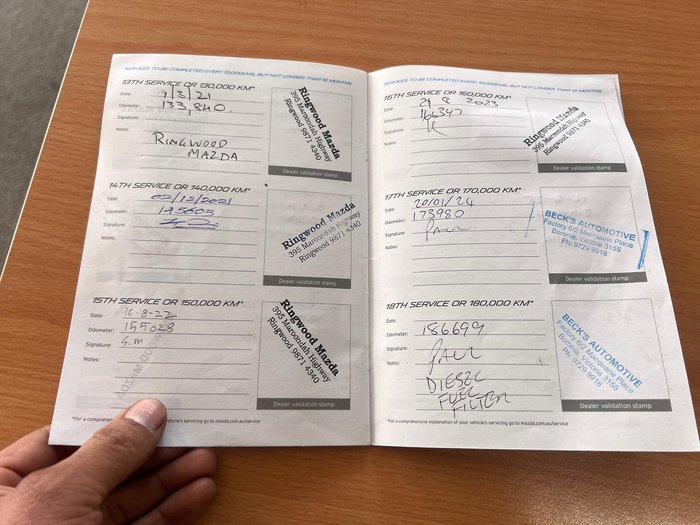 SERVICES TO BE COMPLETED EVERY 10,000KMS, BUT NOT LONGER THAN 12 MONTHS
13TH SERVICE OR 130,000 KM*
Date: 9/3/21
Odometer: 133,840
Signature:
Notes:
RINGWOOD
MAZDA
Ringwood Mazda
395 Maroondah Highway
Ringwood 9871 4340
Dealer validation stamp
14TH SERVICE OR 140,000 KM*
Date: 02/12/2021
Odometer: 145603
Signature:
Notes:
Ringwood Mazda
395 Maroondah Highway
Ringwood 9871 4340
Dealer validation stamp
15TH SERVICE OR 150,000 KM*
Date: 16-8-22
Odometer: 155028
Signature: S.m
Notes:
Ringwood Mazda
395 Maroondah Highway
Ringwood 9871 4340
Dealer validation stamp
*For a comprehensive explanation of your vehicle's servicing go to mazda.com.au/service
SERVICES TO BE COMPLETED EVERY 10,000KMS, BUT NOT LONGER THAN 12 MONTHS
16TH SERVICE OR 160,000 KM*
Date: 29 8 2023
Odometer: 166347
Signature:
Notes:
Ringwood Mazda
395 Maroondah Highway
Ringwood 9871 4340
Dealer validation stamp
17TH SERVICE OR 170,000 KM*
Date: 20/01/24
Odometer: 173980
Signature: PAUL
Notes:
BECK'S AUTOMOTIVE
Factory 6/2 Macquarie Place
Boronia, Victoria 3155
Ph: 9729 9018
Dealer validation stamp
18TH SERVICE OR 180,000 KM*
Date:
Odometer: 186699
Signature: PAUL
Notes:
DIESEL
FUEL
FILTER
BECK'S AUTOMOTIVE
Factory 6/2 Macquarie Place
Boronia, Victoria 3155
Ph: 9729 9018
Dealer validation stamp
*For a comprehensive explanation of your vehicle's servicing go to mazda.com.au/service